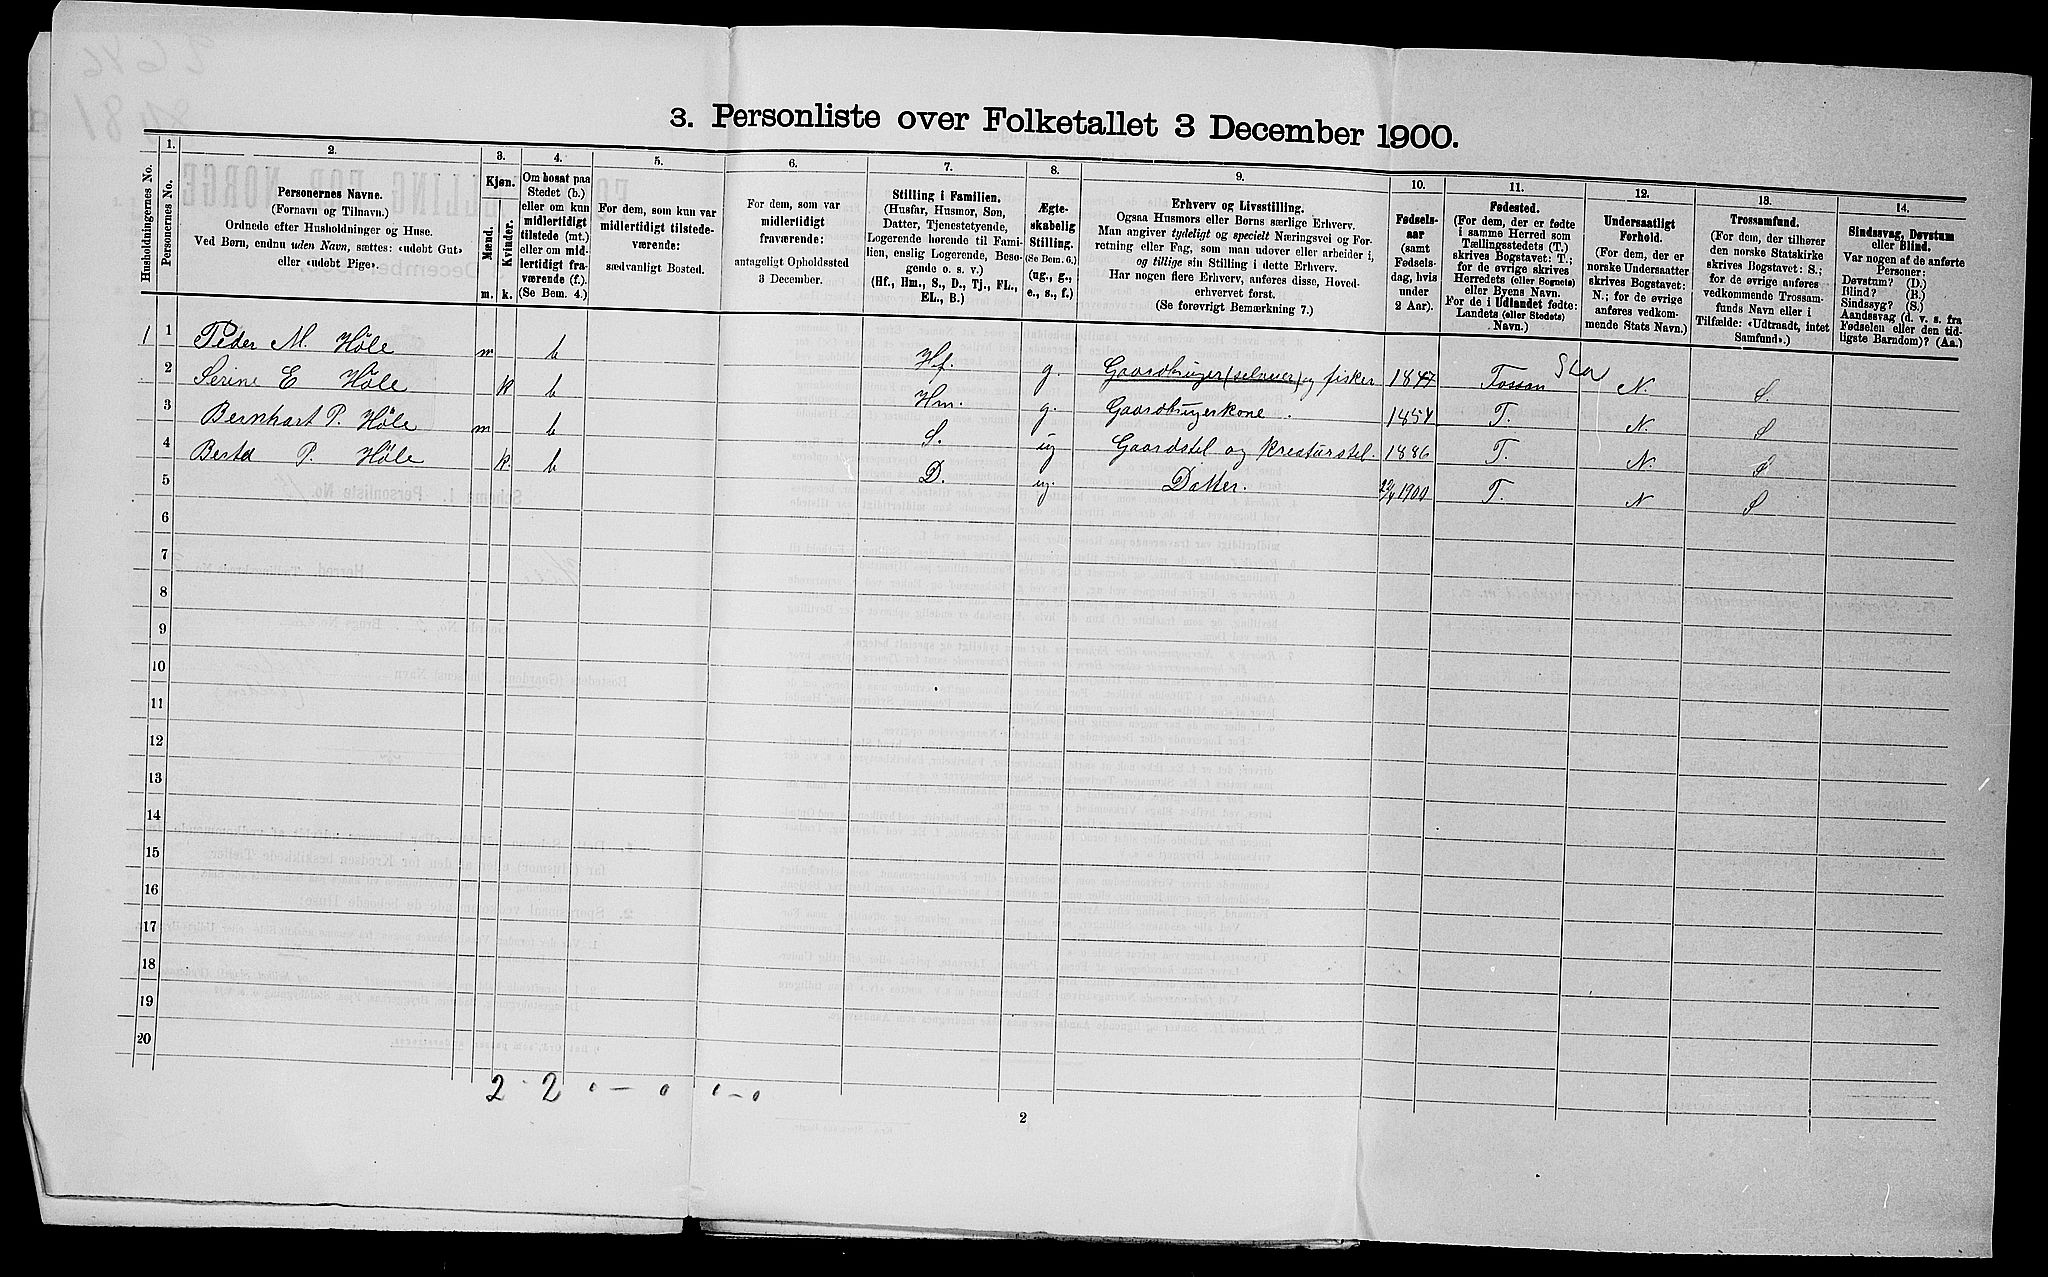 3. Personliste over Folketallet 3 December 1900.
Husholdningernes No.
1.
Personernes No.
2.
Personernes Navne.
(Fornavn og Tilnavn.)
Ordnede efter Husholdninger og Huse.
Ved Børn, endnu uden Navn, sættes: «udøbt Gut»
eller «udøbt Pige».
3.
Kjøn.
Mænd.
Kvinder.
m.
k.
4.
Om bosat paa
Stedet (b.)
eller om kun
midlertidigt
tilstede (mt.)
eller om mid-
lertidigt fra-
værende (f.).
(Se Bem. 4.)
5.
For dem, som kun var
midlertidigt tilstede-
værende:
sædvanligt Bosted.
6.
For dem, som var
midlertidigt
fraværende:
antageligt Opholdssted
3 December.
7.
Stilling i Familien.
(Husfar, Husmor, Søn,
Datter, Tjenestetyende,
Logerende hørende til Fami-
lien, enslig Logerende, Besø-
gende o. s. v.)
(Hf., Hm., S., D., Tj., FL.,
EL., B.)
8.
Ægte-
skabelig
Stilling.
(Se Bem. 6.)
(ug., g.,
e., s., f.)
9.
Erhverv og Livsstilling.
Ogsaa Husmors eller Børns særlige Erhverv.
Man angiver tydeligt og specielt Næringsvei og For-
retning eller Fag, som man udøver eller arbeider i,
og tillige sin Stilling i dette Erhverv.
Har nogen flere Erhverv, anføres disse, Hoved-
erhvervet først.
(Se forøvrigt Bemærkning 7.)
10.
Fødsels-
aar
(samt
Fødsels-
dag, hvis
under
2 Aar).
11.
Fødested.
(For dem, der er fødte
i samme Herred som
Tællingsstedets (T.)
skrives Bogstavet: T.;
for de øvrige skrives
Herredets (eller Sognets)
eller Byens Navn.
For de i Udlandet fødte:
Landets (eller Stedets)
Navn.)
12.
Undersaatligt
Forhold.
(For dem, der er
norske Undersaatter
skrives Bogstavet:
N.; for de øvrige
anføres vedkom-
mende Stats Navn.)
13.
Trossamfund.
(For dem, der tilhører
den norske Statskirke
skrives Bogstavet: S.;
for de øvrige anføres
vedkommende Trossam-
funds Navn eller i
Tilfælde: «Udtraadt, intet
Samfund».)
14.
Sindssvag, Døvstum
eller Blind.
Var nogen af de anførte
Personer:
Døvstum? (D.)
Blind? (B.)
Sindssyg? (S.)
Aandssvag (d. v. s. fra
Fødselen eller den tid-
ligste Barndom)? (Aa.)
1 1 Peder M. Höle m b Hf. g. Gaardbruger (selveier) og fisker 1847 Fossan Sta N. S.
2 Serine E Höle k b Hm. g. Gaardbrugerkone. 1854 T. N. S
3 Bernhart P. Höle m b S. ug Gaardstel og kreaturstel. 1886 T. N. S
4 Berta P. Höle k. b D. ug. Datter. 1900 T. N S
5
6
7
8
9
10
11
12
13
14
15
16
17
18
19
20
2 · 2
2